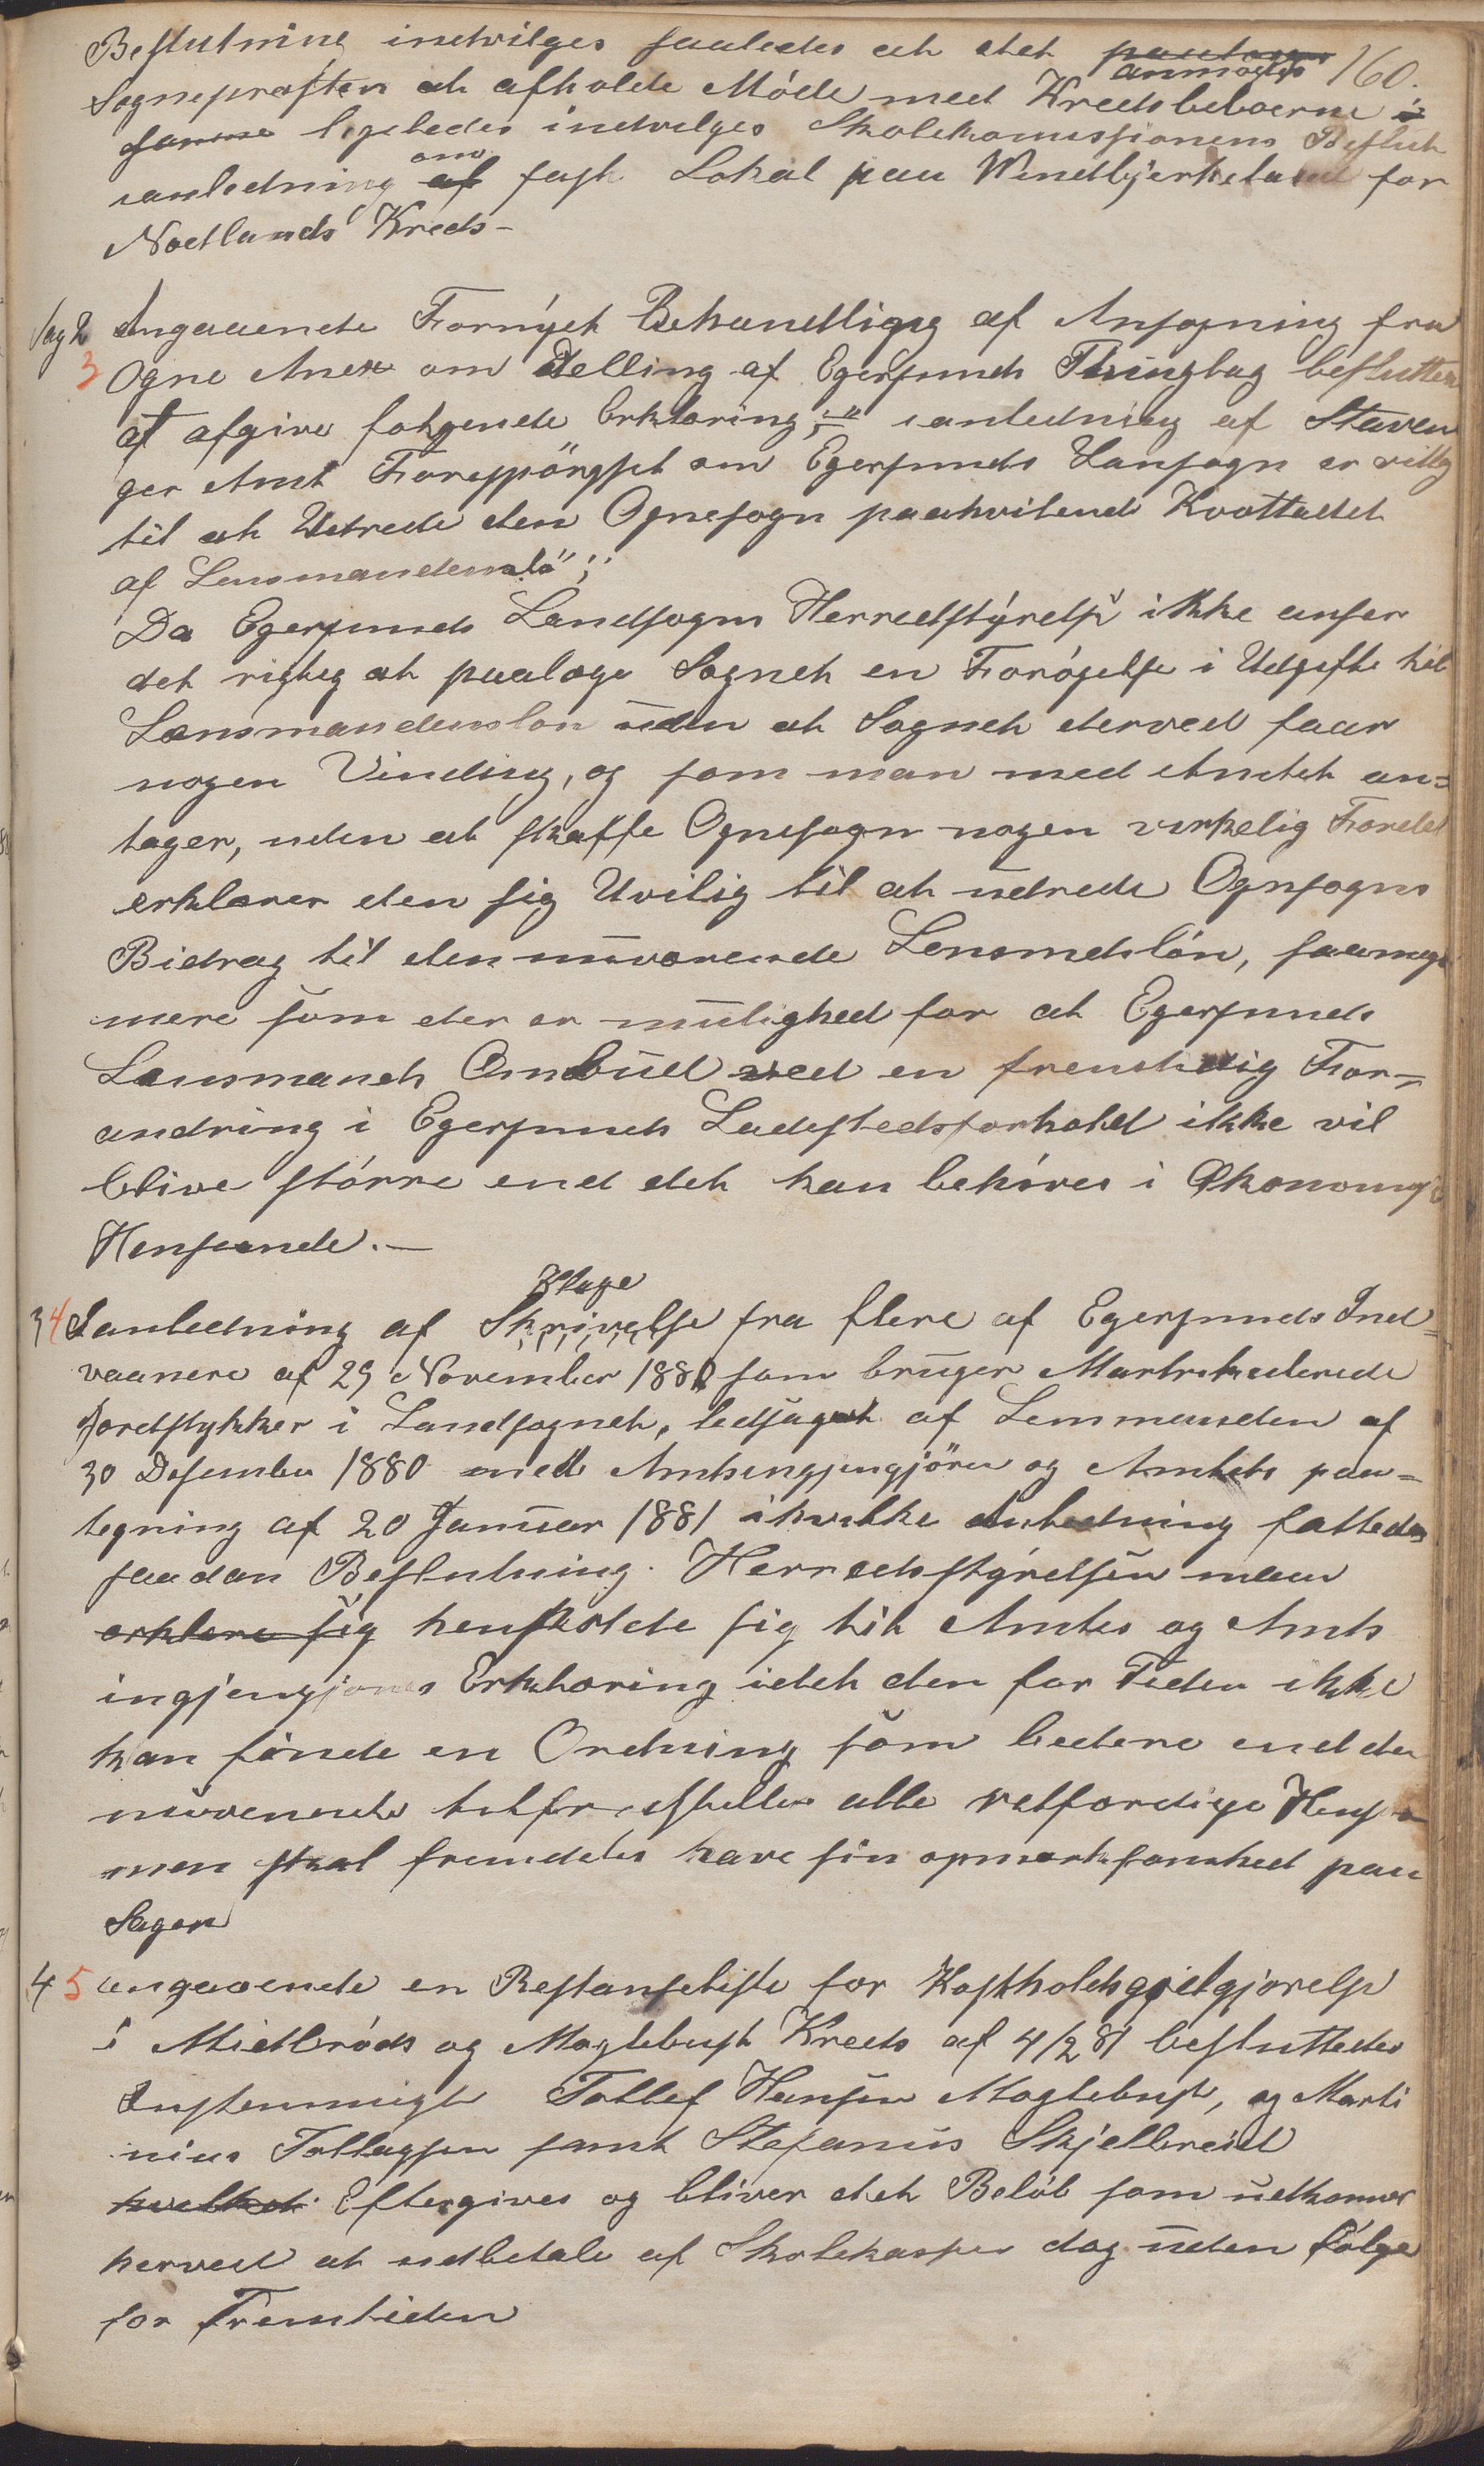 160.
Beslutning indvilges saaledes at det paalægges anmodes
Sognepræsten at afholde Móde med Kredsbeboerne i
samme ligeledes indvilges Skolekomissionens Beslut
ianledning af om fast Lokal paa Mindbjerkeland for
Nodlands Kreds -
Sag 2 3 Angaaende Fornÿet Behandling af Ansøgning fra
Ogne Anex om Delling af Egersunds Thinglag besluttes
at afgive følgende Erklæring; „ ianledning af Stavan
ger Amt Forespörgsel om Egersunds Lansogn er villig
til at Udrede den Ognesogn paahvilende Kvottadel
af Lensmandensló";
Da Egersunds Landsogns Herredstÿrelse ikke anser
det rigtig at paalæge Sogneh en Forøgelse i Udgifte til
Lænsmandensløn uden at Sogneh derved faar
nogen Vinding, og som man med Andet an=
tager, uden at skaffe Ognesogn nogen virkelig Fordel
erklærer den sig Uvilig til at udrede Ognsogns
Bidrag til den nuværende Lensmdslön, saameget
mere som der er mulighed for at Egersunds
Lænsmands Ombud ved en fremtidig For=
andring i Egersunds Ladestedsforhold ikke vil
blive större end det kan behöves i Økonomisk
Henseende. —
3 4 Ianledning af Skrivelse Klage fra flere af Egersunds Ind=
vaanere af 29 November 1880 som bruger Martrikulerede
Jordstykker i Landsogneh, ledsaget af Lensmanden af
30 Desember 1880 med Amtsingjengjören og Amtets paa=
tegning af 20 Januar 1881 ihvilke Anledning fattedes
saadan Beslutning. Herredsstÿrelsen maa
erklære sig henholde sig tih Amtes og Amts
ingjengjøres Erklæring ideh den for Tiden ikke
kan finde en Ordning som bedere end den
nuværende tilfresstiller alle retfærdige Hens
men skal fremdeles have sin opmærksomhed paa
Sagen
4 5 angaaende en Restanseliste for Kostholdsgodtgjørelse
i Midbröds og Mogleb­ust Kreds af 4/2 81 besluttedes
Enstemmigt Tollef Hansen Moglebust, og Marti
nius Tollagsen samt Stefanus Skjelbreid
hvilket Eftergives og bliver deh Belöb som udkommer
herved at udbetale af Skolekassen dog uden fölge
for Fremtiden